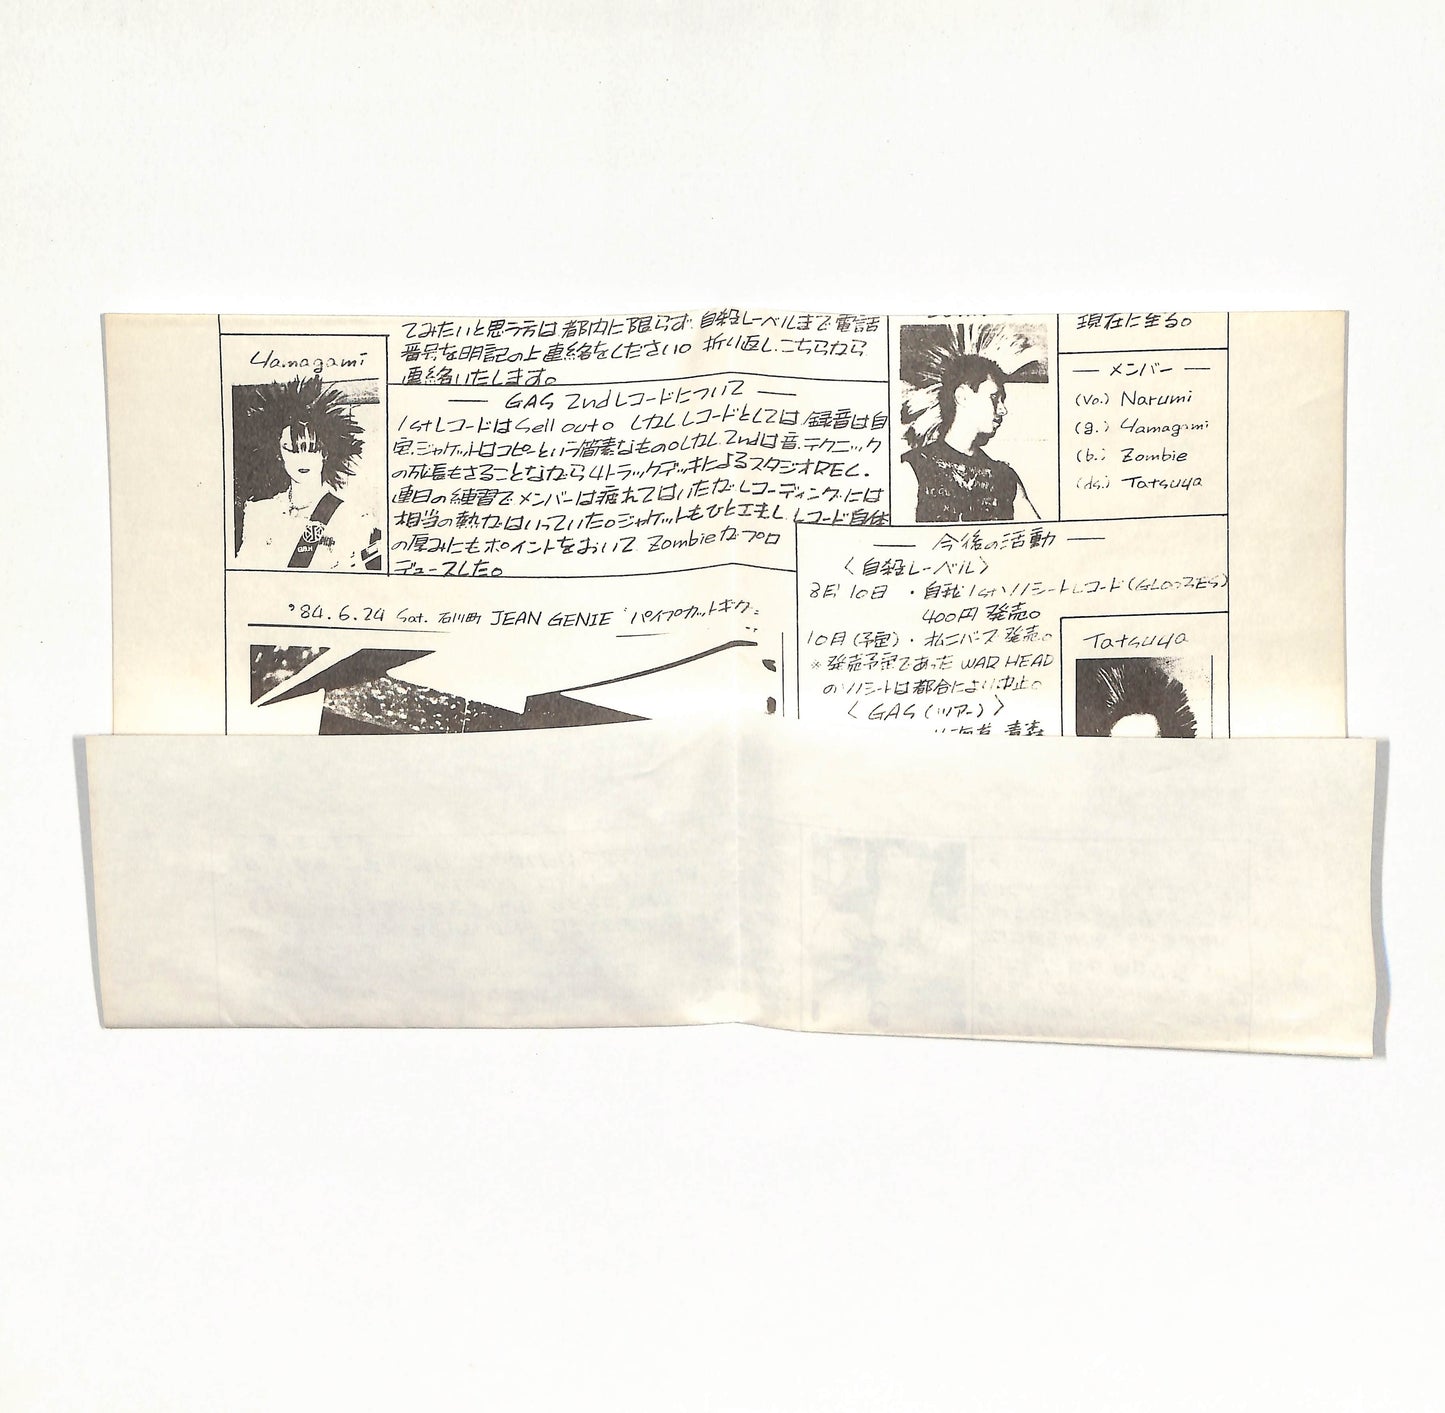 Yamagami
てみたいと思う方は都内に限らず.自殺レーベルまで電話
番号を明記の上連絡をください。折り返しこちらから
連絡いたします。
— GAS 2ndレコードについて —
1stレコードはSell out。しかしレコードとしては,録音は自
宅.ジャケットはコピーという簡素なもの。しかし2ndは音.テクニック
の成長もさることながら4トラックデッキによるスタジオREC.
連日の練習でメンバーは疲れてはいたがレコーディングには
相当の熱がはいっていた。ジャケットもひと工夫し.レコード自体
の厚みにもポイントをおいて Zombieがプロ
デュースした。
現在に至る。
— メンバー —
(Vo.) Narumi
(g.) Yamagami
(b.) Zombie
(ds.) Tatsuya
— 今後の活動 —
〈自殺レーベル〉
8月10日 ・自殺1stソノシートレコード(GLOOZES)
400円発売。
10月(予定)・オムニバス発売。
※発売予定であった WAR HEAD
のソノシートは都合により中止。
〈GAS(ツアー)〉
北海道 青森
Tatsuya
'84.6.24 Sat. 石川町 JEAN GENIE パイプカットギグ